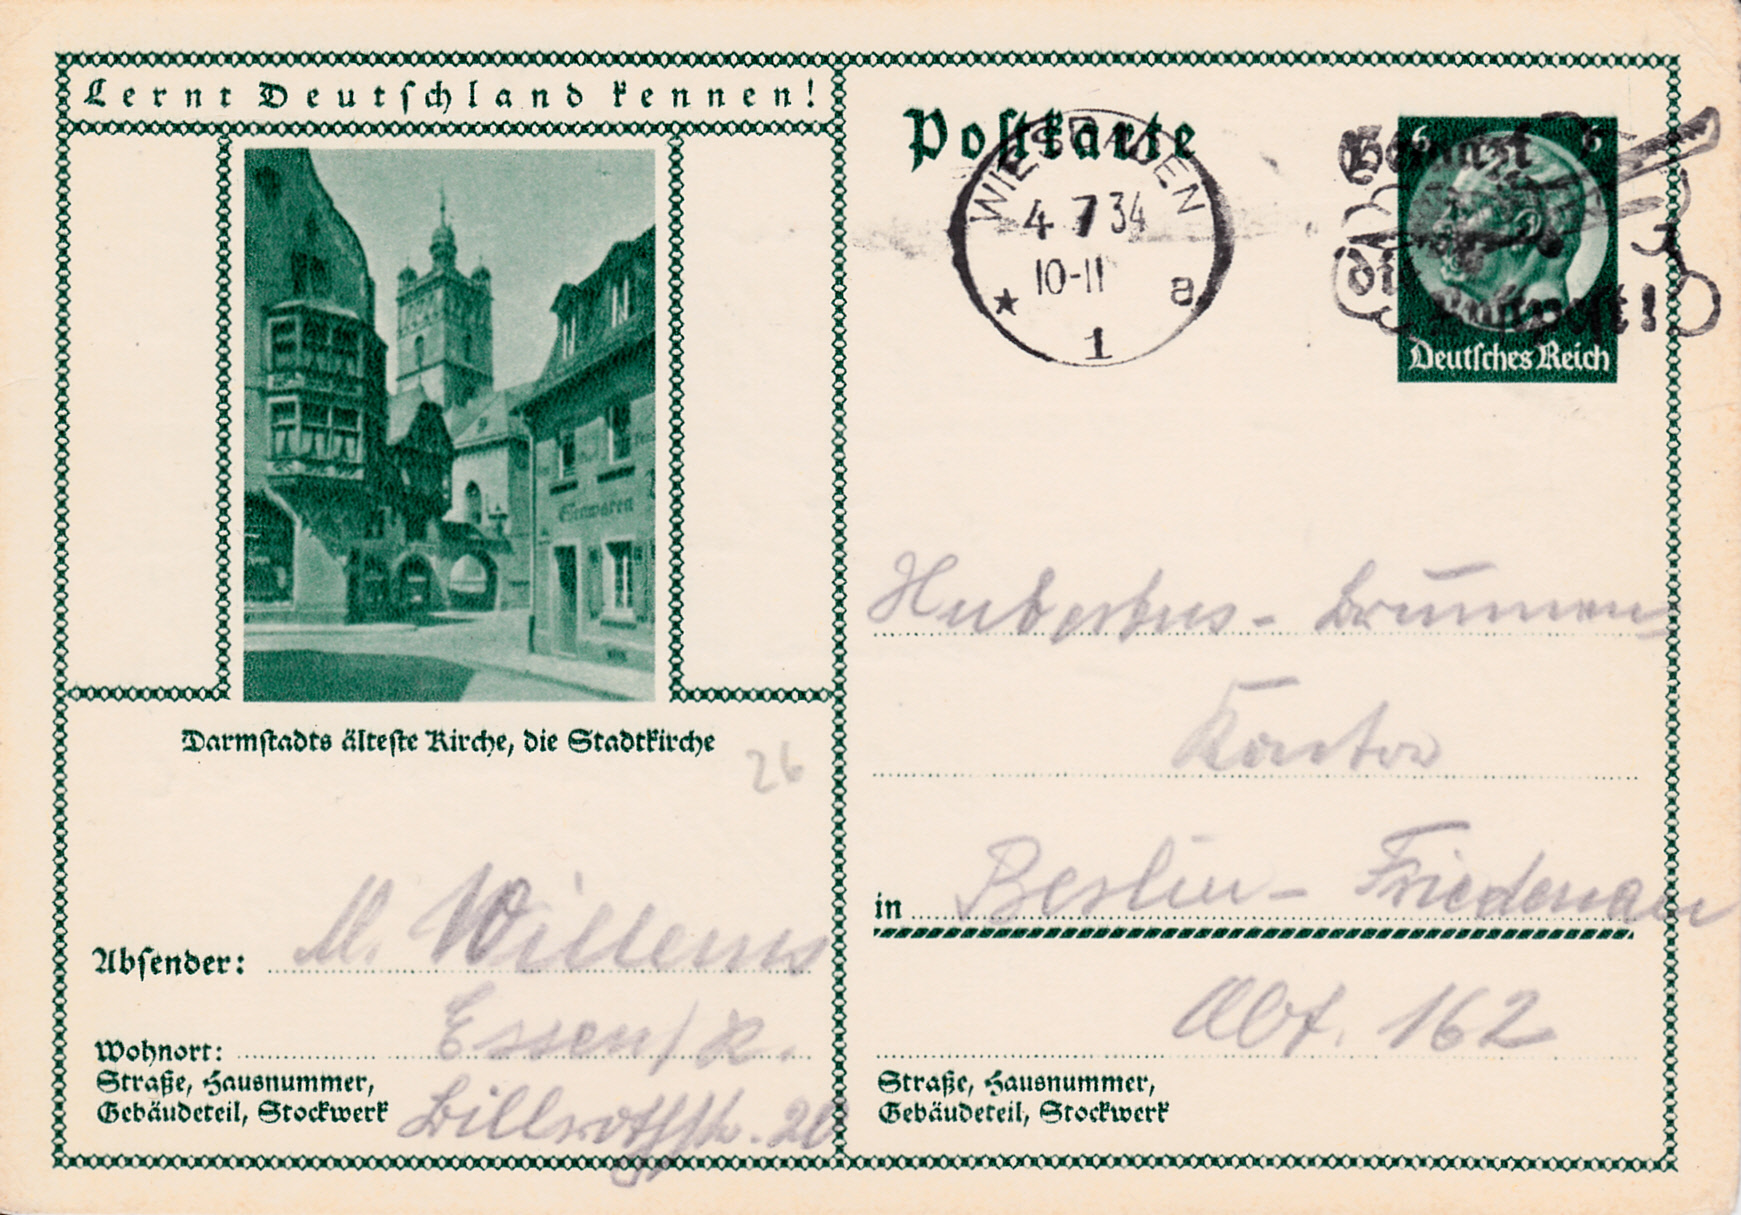 Lernt Deutschland kennen!
Postkarte
WIESBADEN
4 7 34
10-11
★ 1 a
6 6
Benutzt
die
Luftpost!
Deutsches Reich
Eisenwaren
Darmstadts älteste Kirche, die Stadtkirche
26
Hubertus-Brunnen
Kontor
in Berlin-Friedenau
Abt. 162
Straße, Hausnummer,
Gebäudeteil, Stockwerk
Absender: M. Willems
Wohnort: Essen/R.
Straße, Hausnummer,
Gebäudeteil, Stockwerk Billrothstr. 20